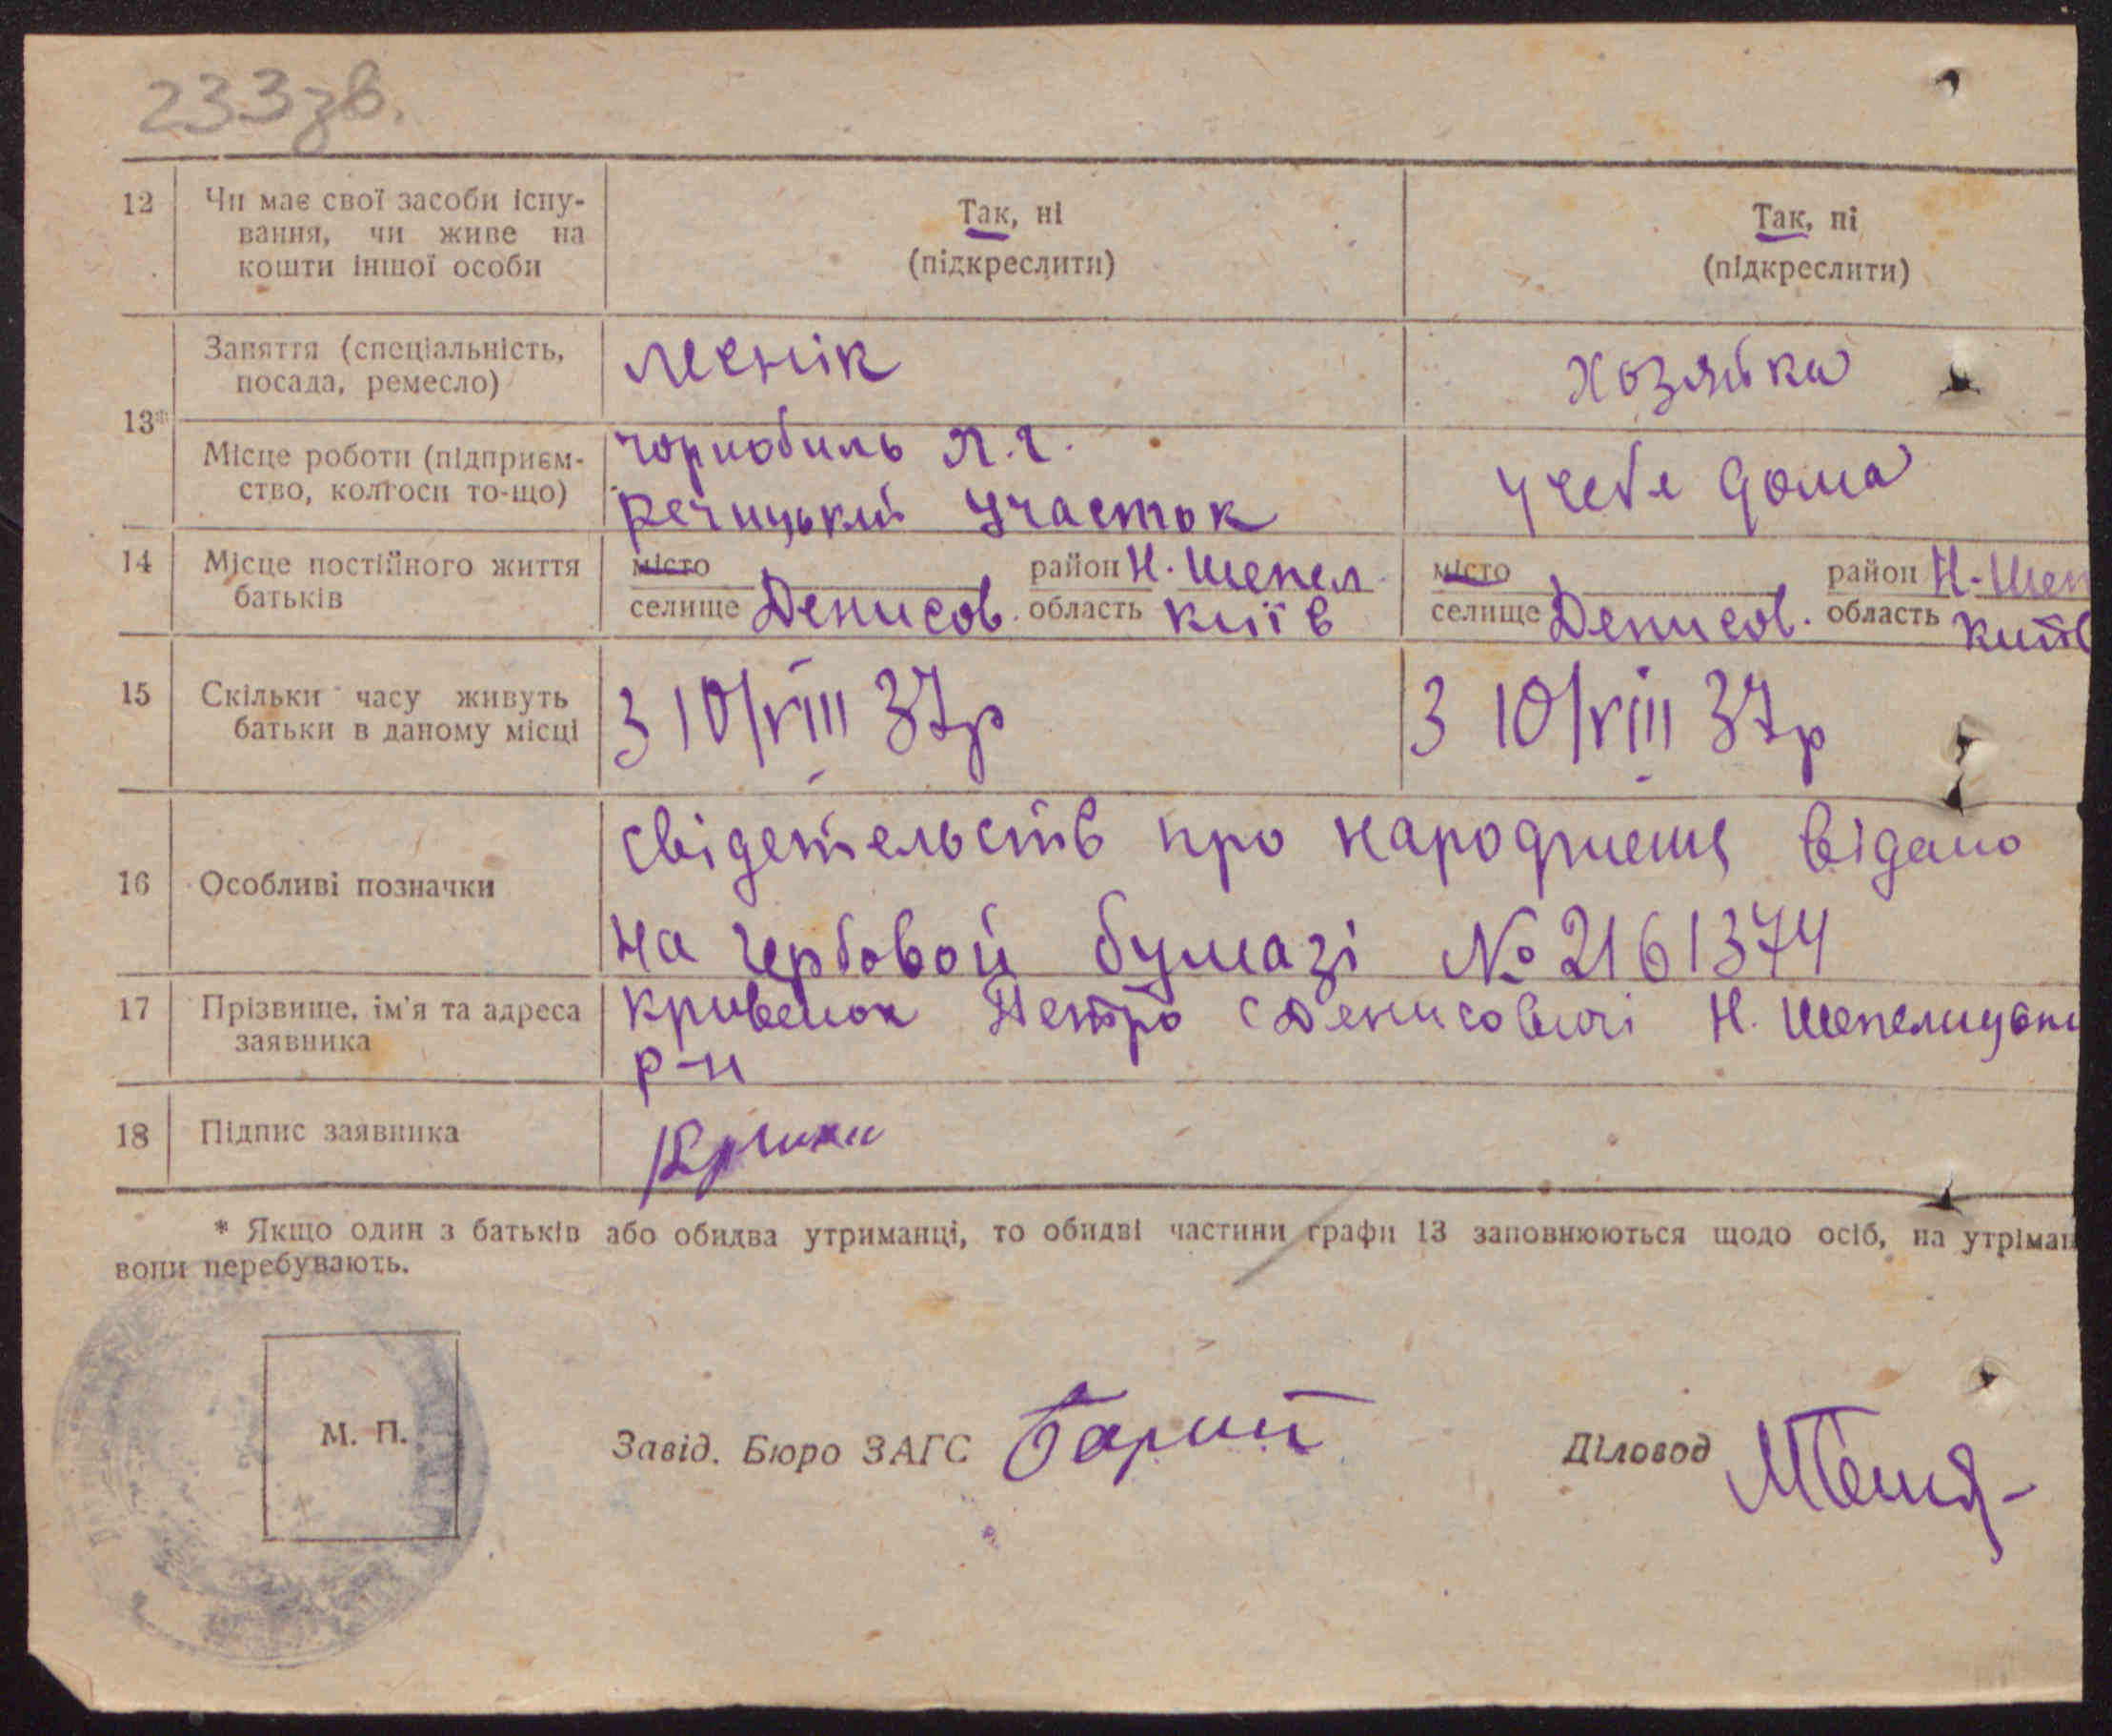 233зв.
12 Чи має свої засоби існу-
вання, чи живе на
кошти іншої особи
Так, ні
(підкреслити)
Так, ні
(підкреслити)
13*
Заняття (спеціальність,
посада, ремесло)
леснік
хозяйка
Місце роботи (підприєм-
ство, колгосп то-що)
Чорнобиль Л.Г.
Речицький участок
у себе дома
14 Місце постійного життя
батьків
місто район Н. Шепел.
селище Денисов. область Київ
місто район Н-Шеп
селище Денисов. область Київ
15 Скільки часу живуть
батьки в даному місці
З 10/VIII 37р
З 10/VIII 37р
16 Особливі позначки
свідетельств про народження видано
на гербовой бумазі № 2161374
17 Прізвище, ім'я та адреса
заявника
Кривенок Петро с Денисовичі Н. Шепелицьки
р-н
18 Підпис заявника
* Якщо один з батьків або обидва утриманці, то обидві частини графи 13 заповнюються щодо осіб, на утріман
вони перебувають.
М. П.
Завід. Бюро ЗАГС
Діловод